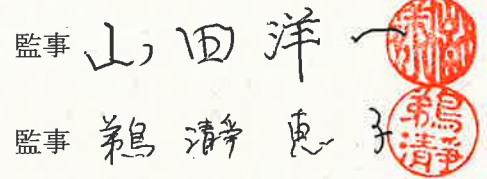 監事 山田洋一
監事 鵜清恵子